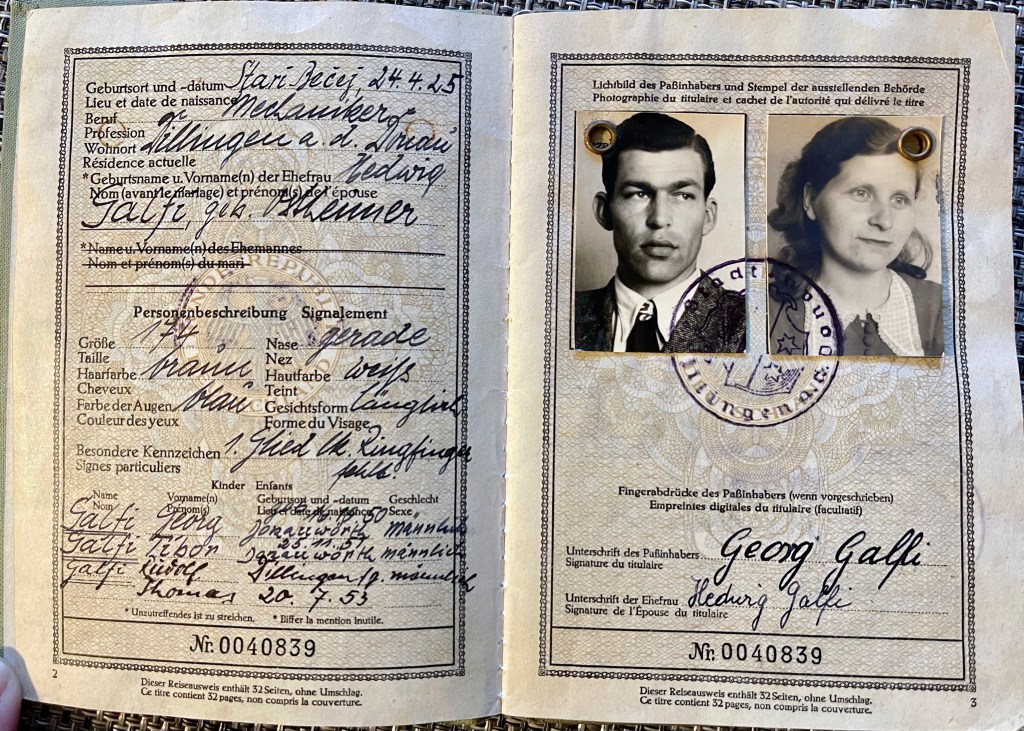 Geburtsort und -datum Stari Bečej, 24.4.25
Lieu et date de naissance
Beruf Mechaniker
Profession
Wohnort Dillingen a. d. Donau
Résidence actuelle
*Geburtsname u. Vorname(n) der Ehefrau Hedwig
Nom (avant le mariage) et prénom(s) de l'épouse
Galfi, geb.
*Name u. Vorname(n) des Ehemannes
Nom et prénom(s) du mari
Personenbeschreibung Signalement
Größe 174 Nase gerade
Taille Nez
Haarfarbe braun Hautfarbe weiß
Cheveux Teint
Farbe der Augen blau Gesichtsform länglich
Couleur des yeux Forme du Visage
Besondere Kennzeichen 1. Glied lk. Ringfinger
Signes particuliers fehlt.
Kinder Enfants
Name Vorname(n) Geburtsort und -datum Geschlecht
Nom Prénom(s) Lieu et date de naissance Sexe
Galfi Georg Donauwörth männlich
Galfi Tibor Donauwörth männlich
Galfi Rudolf Dillingen/D. männlich
Thomas 20. 7. 53
* Unzutreffendes ist zu streichen. * Biffer la mention inutile.
Nr. 0040839
2
Dieser Reiseausweis enthält 32 Seiten, ohne Umschlag.
Ce titre contient 32 pages, non compris la couverture.
Lichtbild des Paßinhabers und Stempel der ausstellenden Behörde
Photographie du titulaire et cachet de l'autorité qui délivré le titre
Fingerabdrücke des Paßinhabers (wenn vorgeschrieben)
Empreintes digitales du titulaire (facultatif)
Unterschrift des Paßinhabers Georg Galfi
Signature du titulaire
Unterschrift der Ehefrau Hedwig Galfi
Signature de l'Épouse du titulaire
Nr. 0040839
Dieser Reiseausweis enthält 32 Seiten, ohne Umschlag.
Ce titre contient 32 pages, non compris la couverture.
3